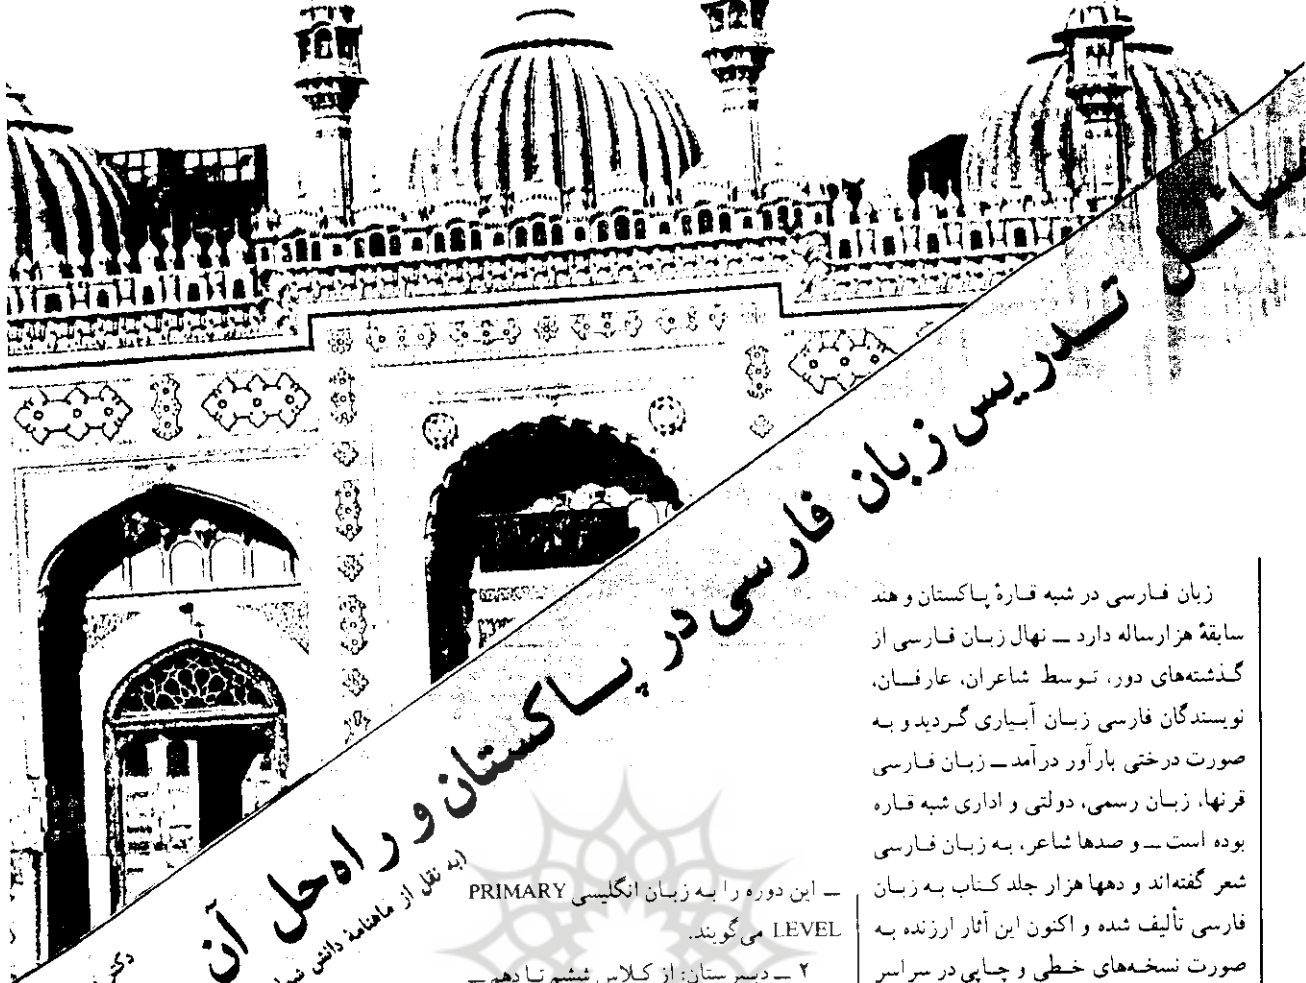 مسائل تـدریس زبان فارسی در پـاکستان و راه‌حل آن
(به نقل از ماهنامهٔ دانش
دکتر
زبان فـارسی در شبه قـارهٔ پـاکستان و هند
سابقهٔ هزارساله دارد ــ نهال زبـان فـارسی از
گـذشته‌های دور، تـوسط شاعران، عارفـان،
نویسندگان فارسی زبـان آبـیاری گـردید و بـه
صورت درختی بارآور درآمد ــ زبـان فـارسی
قرنها، زبـان رسمی، دولتی و اداری شبه قـاره
بوده است ــ و صدها شاعر، بـه زبـان فـارسی
شعر گفته‌اند و دهها هزار جلد کتـاب بـه زبـان
فارسی تألیف شده و اکنون این آثار ارزنده بـه
صورت نسخـه‌های خـطی و چـاپی در سراسر
ــ این دوره را بـه زبـان انگلیسی PRIMARY
LEVEL می‌گویند.
۲ ــ دبـیرستان: از کـلاس ششم تـا دهم ــ